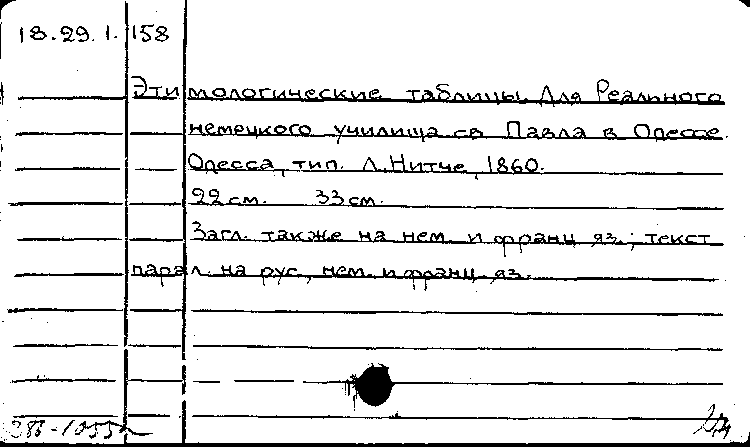 18.29.1.158
Этимологические таблицы для Реального
немецкого училища св Павла в Одессе.
Одесса, тип. Л. Нитче, 1860.
22 см. 33 см.
Загл. также на нем. и франц яз.; текст
парал. на рус., нем. и франц. яз.